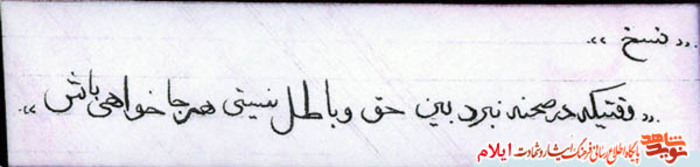 .,, نسخ ,,.
.,, وقتیکه در صحنه نبرد بین حق و باطل نیستی هرجا خواهی باش ,,.
نوید شاهد
پایگاه اطلاع رسانی فرهنگ ایثار و شهادت ایلام